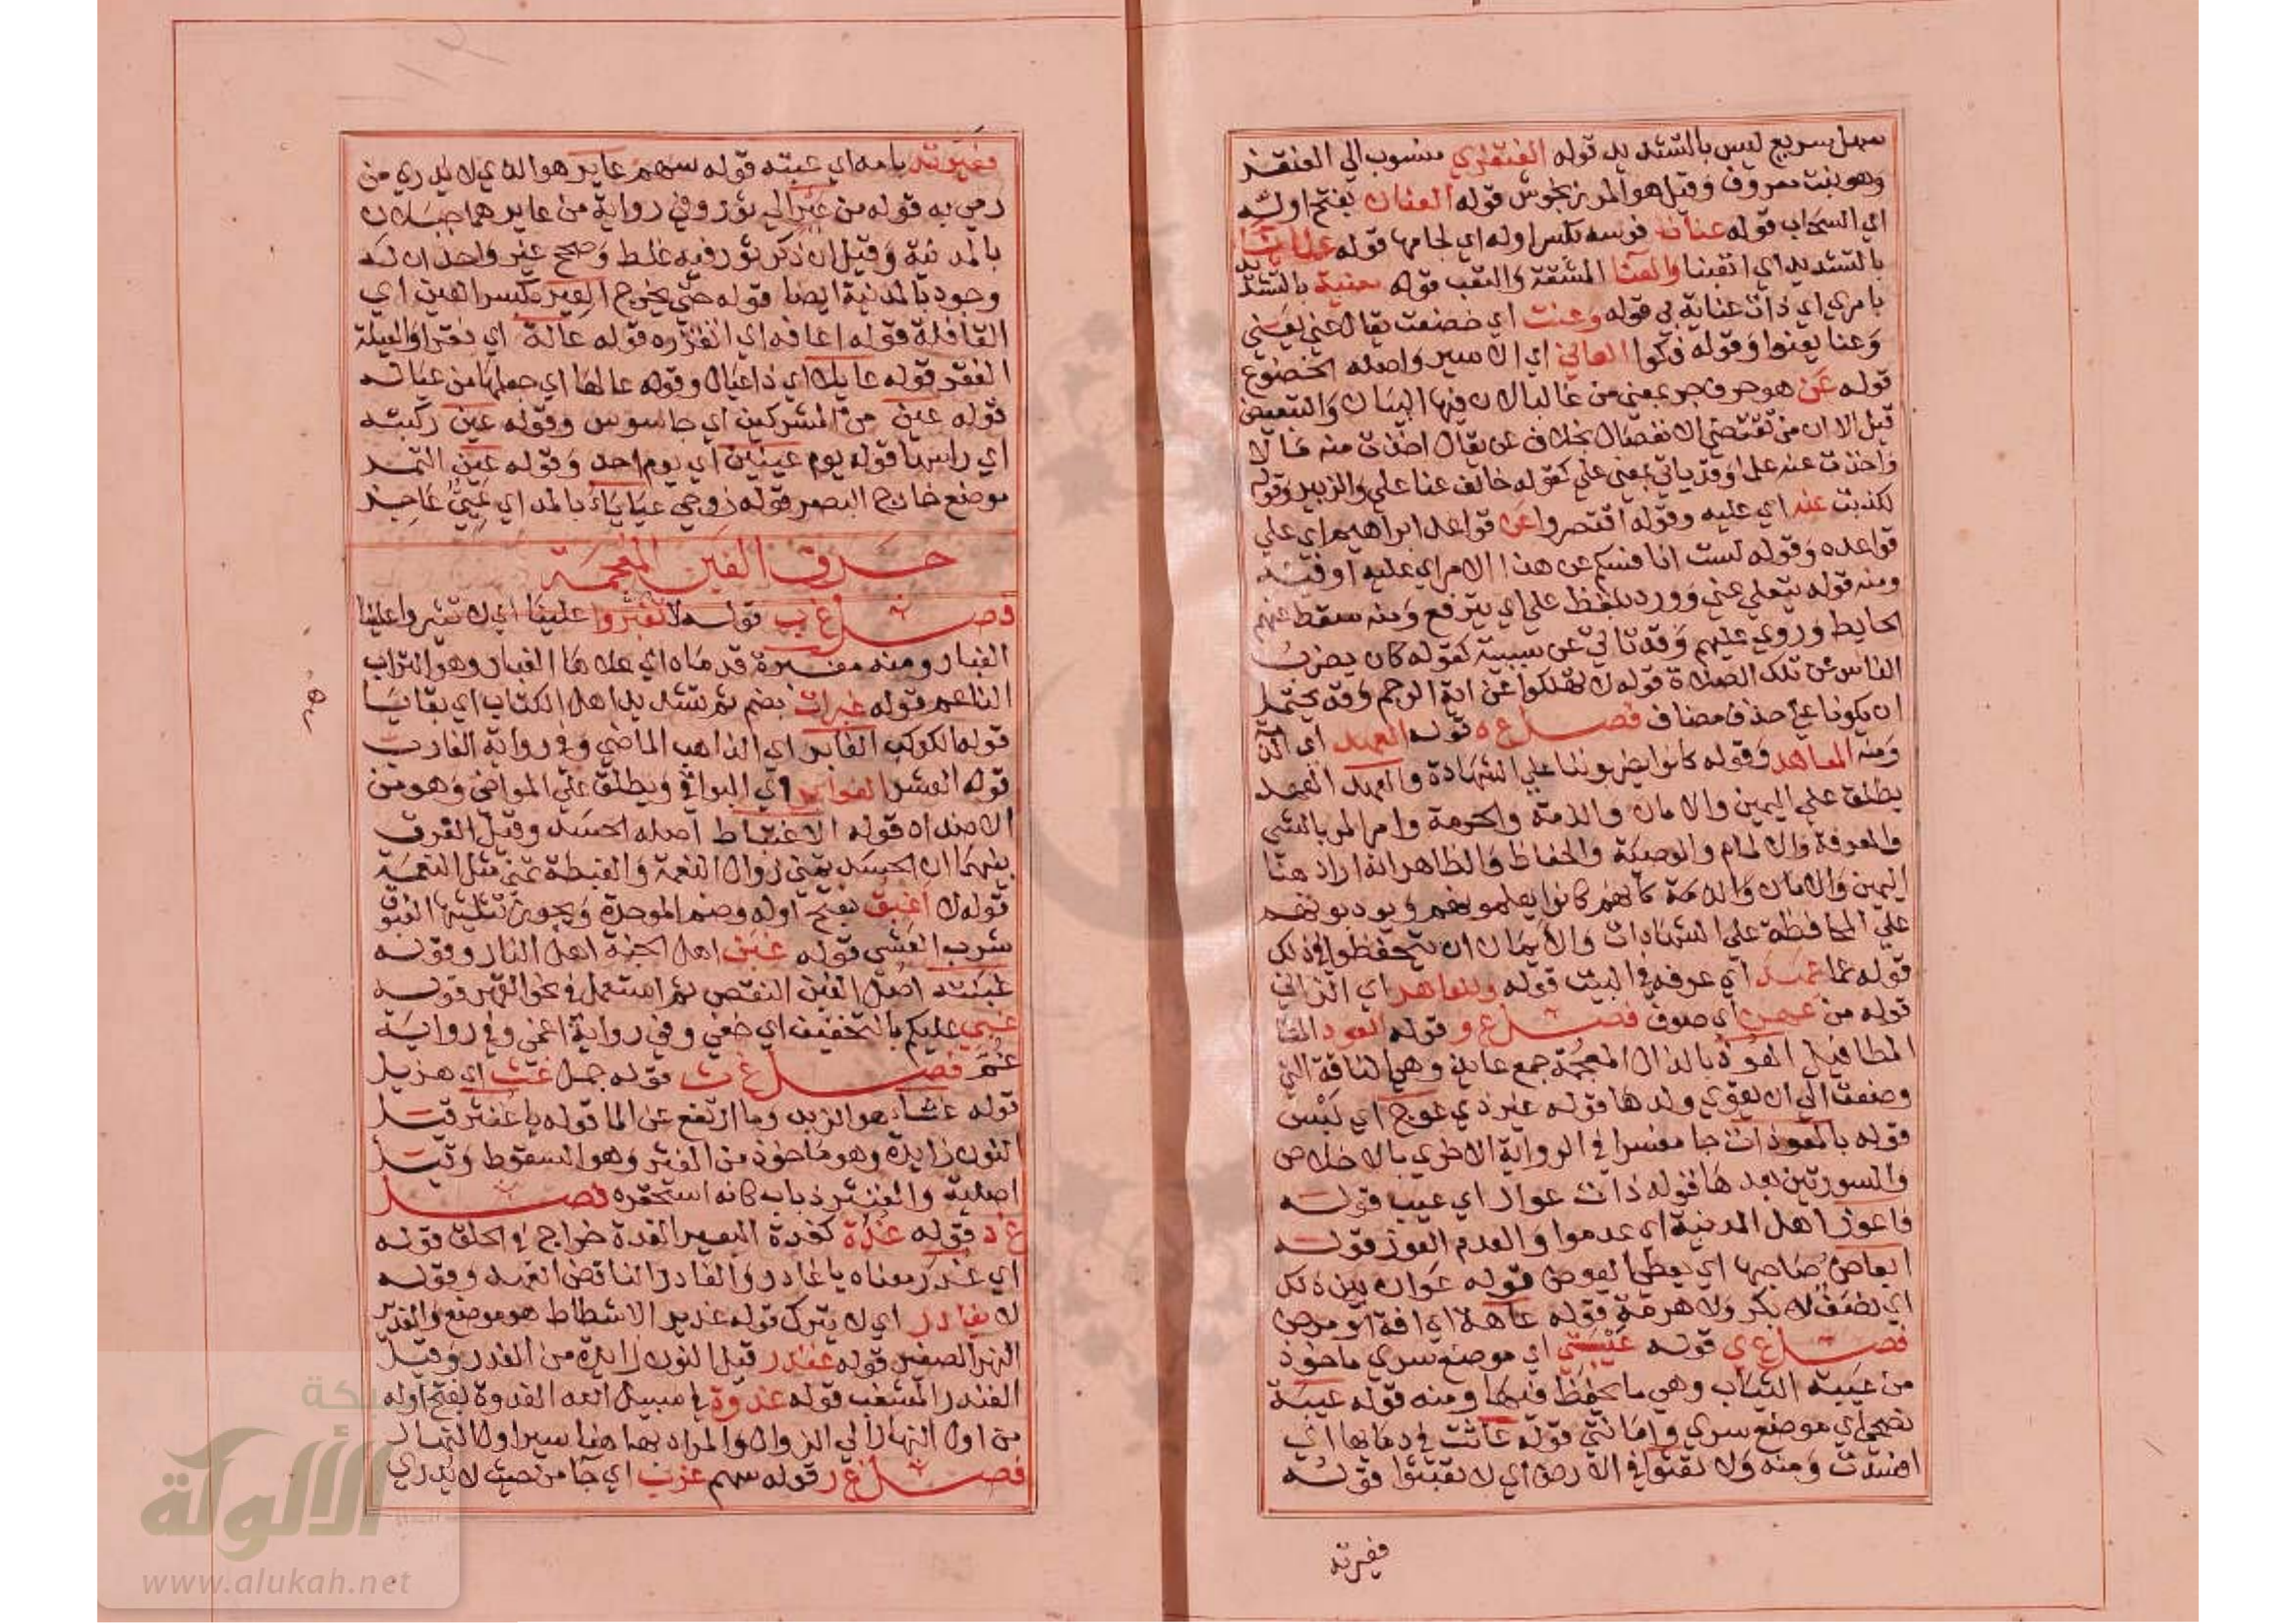 سهل سريع ليس بالتشديد قوله العنقزي منسوب الي العنقز
وهو نبت معروف وقيل هو المرزنجوش قوله العنان بفتح اوله
اي السحاب قوله عنان فرسه بكسر اوله اي لجامها قوله عنانا
بالتشديد اي اتعبنا والعنا المشقة والتعب قوله معنية بالتشديد
بامري اي ذات عناية بي قوله وعنت اي خضعت يقال عني يعني
وعنا يعنوا وقوله فكوا العاني اي الاسير واصله الخضوع
قوله عن هو حرف جر بمعني من غالبا لان فيها البيان والتبعيض
قيل الا ان من تقتضي الانفصال بخلاف عن يقال اخذت منه مالا
واخذت عنه علما وقد ياتي بمعني علي كقوله خالف عنا علي والزبير وقوله
لكذبت عنه اي عليه وقوله اقتصروا عن قواعد ابراهيم اي علي
قواعده وقوله لست انافسكم عن هذا الامر اي عليه او فيه
ومنه قوله يتعلي عني وورد بلفظ علي اي يترفع ومنه سقط عنهم
الحايط وروي عليهم وقد تاتي عن سببية كقوله كان يضرب
الناس عن تلك الصلاة قوله لا تهلكوا عن اية الرجم وقد يحتمل
ان يكونا علي حذف مضاف فصل ع ه قوله العهد اي
ومنه المعاهد وقوله كانوا يضربوننا علي الشهادة والعهد العهد
يطلق علي اليمين والامان والذمة والحرمة وامر المر بالشي
والمعرفة والالمام والوصية والحفاظ والظاهر انه اراد هنا
اليمين والامان والذمة كانهم كانوا يعلمونهم ويودبونهم
علي المحافظة علي الشهادات والايمان ان يتحفظوا في ذلك
قوله عما عهد اي عرفه في البيت قوله وللعاهر اي الزاني
قوله من عهن اي صوف فصل ع و قوله العوذ
المطافيل العوذ بالذال المعجمة جمع عايذ وهي الناقة التي
وضعت الي ان يقوي ولدها قوله غير ذي عوج اي لبس
قوله بالمعوذات جا مفسرا في الرواية الاخري بالاخلاص
والسورتين بعدها قوله ذات عوار اي عيب قوله
فاعوز اهل المدينة اي عدموا والعدم العوز قوله
العاض صاحبها اي يعطي العوض قوله عوان بين ذلك
اي نصف لا بكر ولا هرمة قوله عاهة اي افة او مرض
فصل ع ي قوله عيبتي اي موضع سري ماخوذ
من عيبة الثياب وهي ما يحفظ فيها ومنه قوله عيبة
نصحي اي موضع سري وامانتي قوله عاثت في دمايها اي
افسدت ومنه ولا تعثوا في الارض اي لا تعيثوا قوله
فعيرته
فعيرته بامه اي عبته قوله سهم عاير هو الذي لا يدري من
رمي به قوله من عير الي ثور وفي رواية من عاير هما جبلان
بالمدينة وقيل ان ذكر ثور فيه غلط وصحح غير واحد ان له
وجود بالمدينة ايضا قوله حتي يخرج العير بكسر العين اي
القافلة قوله اعافه اي اتقذره قوله عالة اي فقرا والعيلة
الفقر قوله عايلا اي ذا عيال وقوله عالها اي جعلها من عياله
قوله عين من المشركين اي جاسوس وقوله عين ركبته
اي راسها قوله يوم عينين اي يوم احد وقوله عين التمر
موضع خارج البصر قوله زوجي عياياء بالمد اي عيي عاجز
حرف الغين المعجمة
فصل غ ب قوله لا تغبروا علينا اي لا تثيروا علينا
الغبار ومنه مغبرة قدماه اي علاها الغبار وهو التراب
الناعم قوله غبرات بضم ثم تشديد اهل الكتاب اي بقايا
قوله الكوكب الغابر اي الذاهب الماضي وفي رواية الغارب
قوله العشر الغوابر اي البواقي ويطلق علي المواضي وهو من
الاضداد قوله الاغتباط اصله الحسد وقيل الفرق
بينهما ان الحسد تمني زوال النعمة والغبطة تمني مثل النعمة
قوله لا اغبق بفتح اوله وضم الموحدة ويجوز تثليثها الغبوق
شرب العشي قوله غبن اهل الجنة اهل النار وقوله
غبنته اصل الغبن النقص ثم استعمل في نحو القهر قوله
غبي عليكم بالتخفيف اي خفي وفي رواية اغمي وفي رواية
غم فصل غ ث قوله جمل غث اي هزيل
قوله غثاء هو الزبد وما ارتفع عن الما قوله يا غنثر قيل
النون زايدة وهو ماخوذ من الغثر وهو السقوط وقيل
اصلية والغنثر ذباب كانه استحقره فصل
غ د قوله غدة كغدة البعير الغدة خراج في الحلق قوله
اي غدر معناه يا غادر والغادر الناقض العهد وقوله
لا يغادر اي لا يترك قوله غدير الاشطاط هو موضع والغدير
النهر الصغير قوله غندر قيل النون زايدة من الغدر وقيل
الغندر المشغب قوله غدوة في سبيل الله الغدوة بفتح اوله
من اول النهار الي الزوال والمراد بها هنا سير اول النهار
فصل غ ر قوله سهم غرب اي جا من حيث لا يدري
شبكة
الألوكة
www.alukah.net